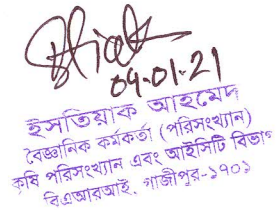 04.01.21
ইসতিয়াক আহমেদ
বৈজ্ঞানিক কর্মকর্তা (পরিসংখ্যান)
কৃষি পরিসংখ্যান এবং আইসিটি বিভাগ
বিএআরআই, গাজীপুর-১৭০১